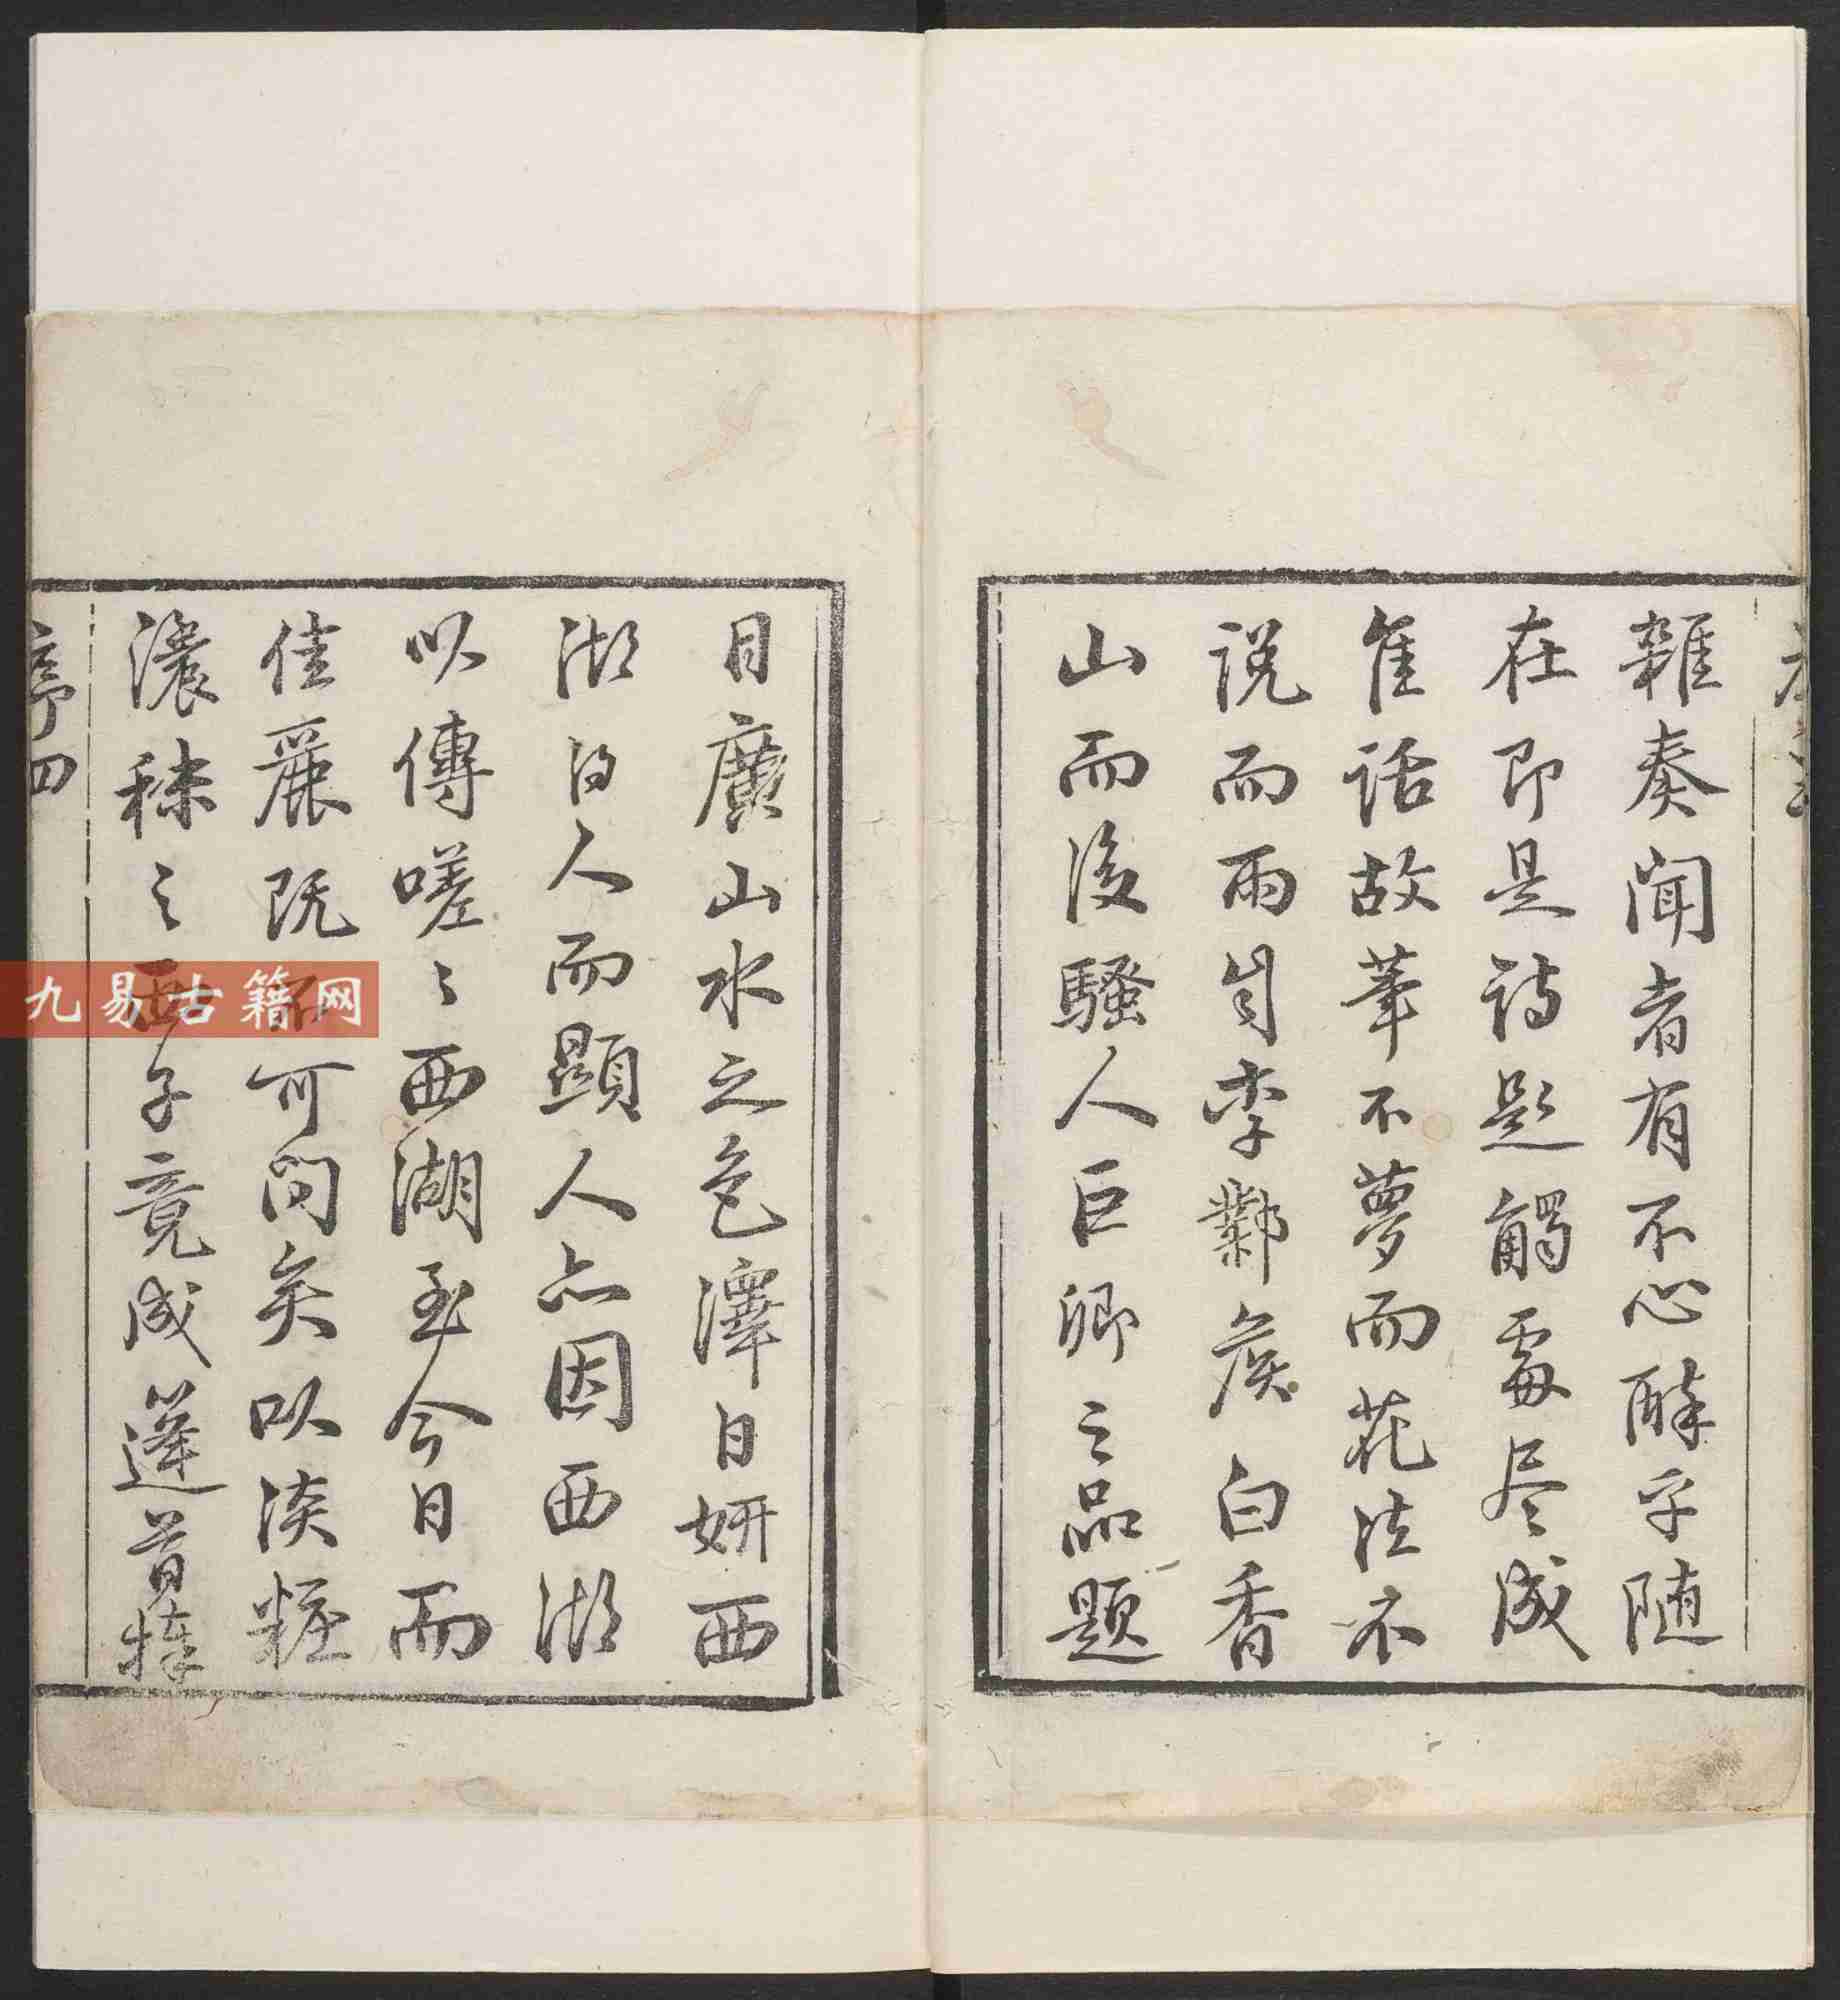 雜奏聞者有不心醉乎随
在即是詩題觸處尽成
佳話故筆不夢而花法不
說而雨自李鄴侯白香
山而後騷人巨卿之品題
日廣山水之色澤日妍西
湖得人而顯人亦因西湖
以傳嗟〻西湖至今日而
佳麗既不可问矣以淡粧
濃秣之西子竟成蓬首捧
序四
九易古籍网